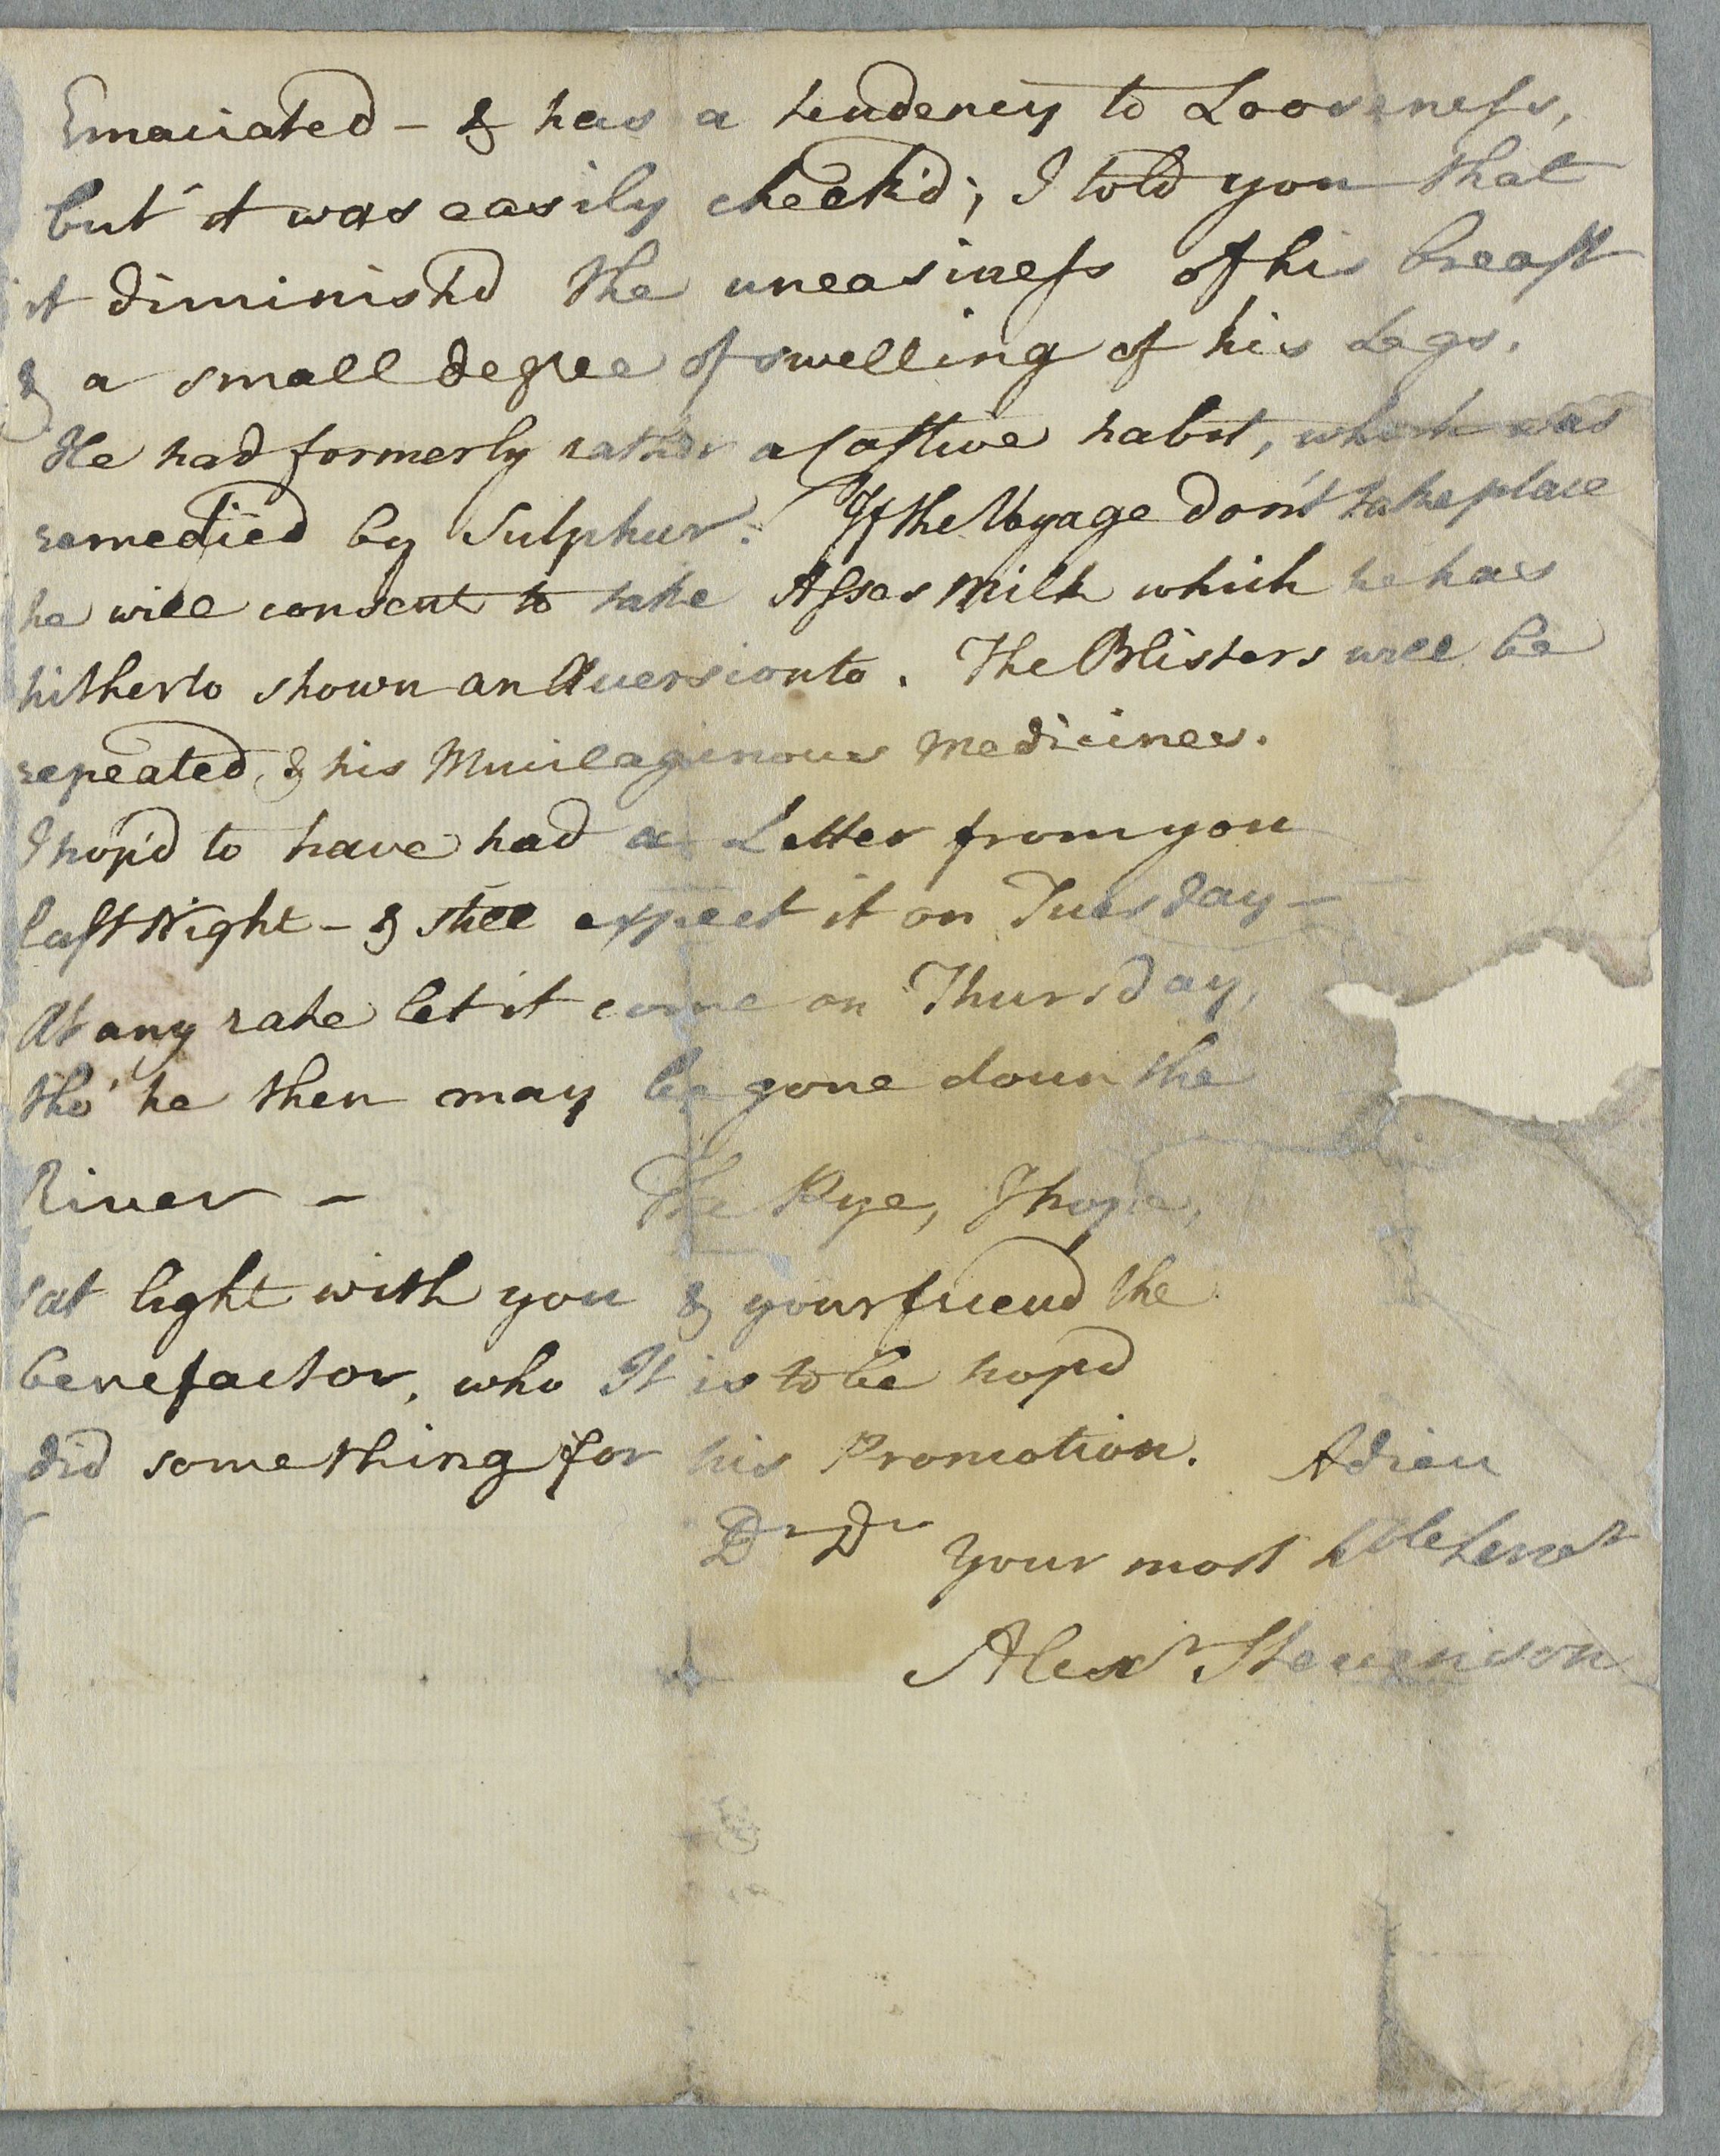 Emaciated - & has a tendency to Looseness,
but it was easily check'd; I told you that
it diminish'd the uneasiness of his breast
& a small degree of swelling of his Legs.
He had formerly rather a Costive habit, which was
remedied by Sulphur. If the Voyage don't take place
he will consent to take Asses Milk which he has
hitherto shown an Aversion to. The Blisters will be
repeated, & his Mucilaginous Medicines.
I hop'd to have had a Letter from you
last Night - & still expect it on Tuesday -
At any rate let it come on Thursday,
tho' he then may be gone down the
River - The Pye, I hope,
sat light with you & your friend the
benefactor, who It is to be hop'd
did something for his Promotion. Adieu
Dr Dr Your most hble Servt
Alexr Stevenson